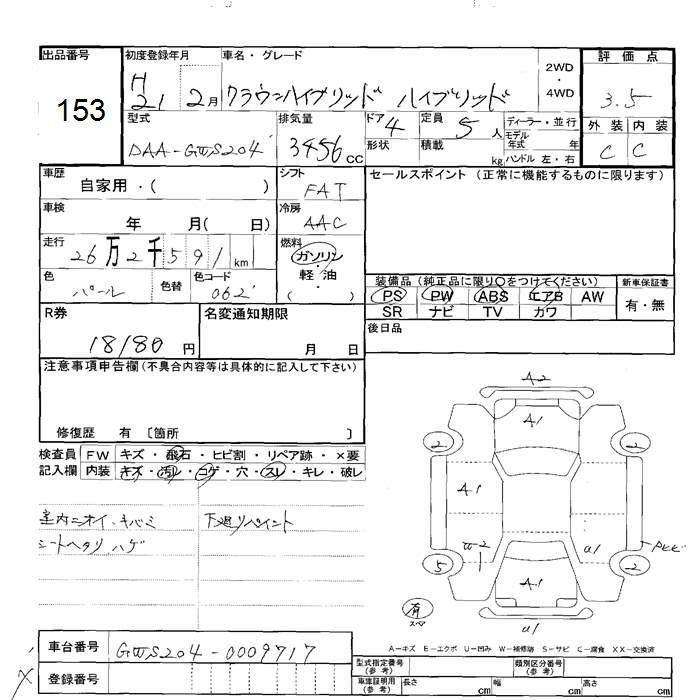 出品番号 初度登録年月 車名・グレード 評価点
153 H21 2月 クラウンハイブリッド ハイブリッド 2WD・4WD 3.5
型式 排気量 ドア 4 定員 5人 ディーラー・並行 外装 内装
DAA-GWS204 3456cc 形状 積載 kg モデル年式 年 ハンドル 左・右 C C
車歴 シフト セールスポイント (正常に機能するものに限ります)
自家用・( ) FAT
車検 冷房
年 月( 日) AAC
走行 燃料
26万2千591km ガソリン・
色 色替 色コード 軽油
パール 062 ( )
装備品(純正品に限り○をつけてください) 新車保証書
PS PW ABS エアB AW 有・無
SR ナビ TV カワ
R券 名変通知期限 後日品
18180円 月 日
注意事項申告欄(不具合内容等は具体的に記入して下さい)
修復歴 有 〔箇所 〕
検査員 FW キズ・飛石・ヒビ割・リペア跡・×要
記入欄 内装 キズ・汚れ・コゲ・穴・スレ・キレ・破レ
室内ニオイ・キバミ 下廻りペイント
シートヘタリ ハゲ
A2
A1
2 2
A1
W-2 U1
5 2
A1
有
スペア
U1
A-キズ E-エクボ U-凹み W-補修跡 S-サビ C-腐食 XX-交換済
車台番号 GWS204-0009717
登録番号
型式指定番号(参考) 類別区分番号(参考)
車庫証明用(参考) 長さ cm 幅 cm 高さ cm